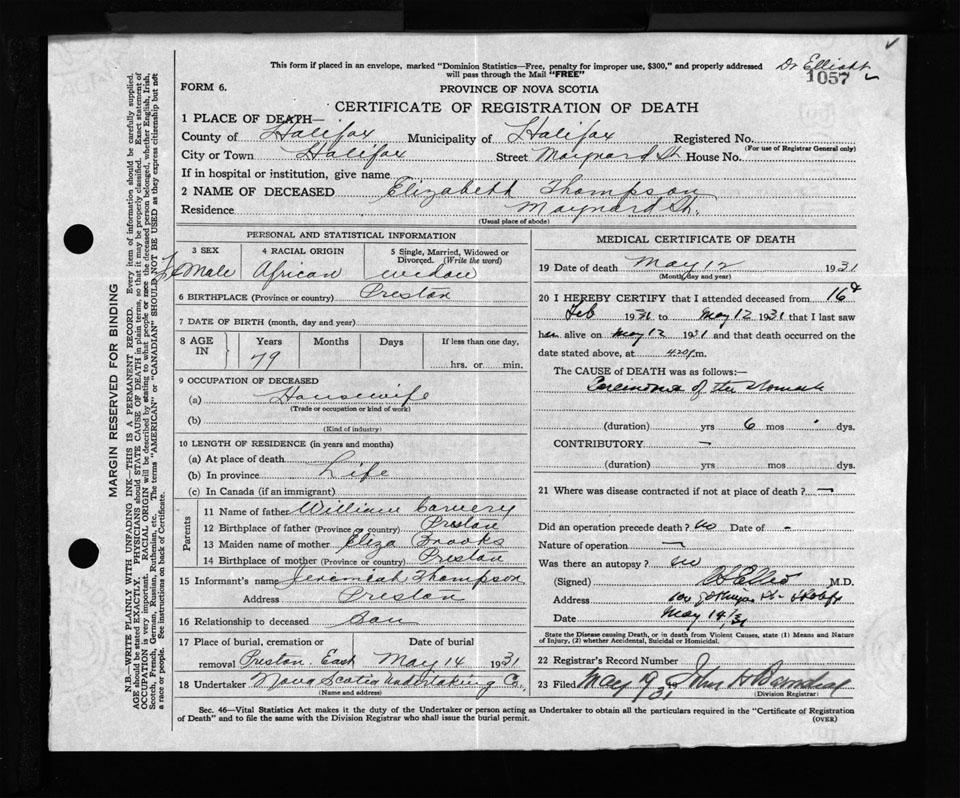 This form if placed in an envelope, marked "Dominion Statistics—Free, penalty for improper use, $300," and properly addressed
will pass through the Mail "FREE"
Dr Elliott
1057
FORM 6.
PROVINCE OF NOVA SCOTIA
CERTIFICATE OF REGISTRATION OF DEATH
1 PLACE OF DEATH—
County of Halifax Municipality of Halifax Registered No.
(For use of Registrar General only)
City or Town Halifax Street Maynard St. House No.
If in hospital or institution, give name
2 NAME OF DECEASED Elizabeth Thompson
Residence Maynard St.
(Usual place of abode)
PERSONAL AND STATISTICAL INFORMATION
3 SEX 4 RACIAL ORIGIN 5 Single, Married, Widowed or Divorced. (Write the word)
FeMale African widow
6 BIRTHPLACE (Province or country) Preston
7 DATE OF BIRTH (month, day and year)
8 AGE IN Years Months Days If less than one day,
79 hrs. or min.
9 OCCUPATION OF DECEASED
(a) Housewife
(Trade or occupation or kind of work)
(b)
(Kind of industry)
10 LENGTH OF RESIDENCE (in years and months)
(a) At place of death
(b) In province Life
(c) In Canada (if an immigrant)
Parents
11 Name of father William Carvery
12 Birthplace of father (Province or country) Preston
13 Maiden name of mother Eliza Brooks
14 Birthplace of mother (Province or country) Preston
15 Informant's name Jeremiah Thompson
Address Preston
16 Relationship to deceased Son
17 Place of burial, cremation or Date of burial
removal Preston East May 14 1931
18 Undertaker Nova Scotia Undertaking Co.
(Name and address)
MEDICAL CERTIFICATE OF DEATH
19 Date of death May 12 1931
(Month, day and year)
20 I HEREBY CERTIFY that I attended deceased from 16th
Feb 1931 to May 12 1931 that I last saw
her alive on May 12 1931 and that death occurred on the
date stated above, at 4.20 p.m.
The CAUSE OF DEATH was as follows:—
Carcinoma of the Stomach
(duration) yrs 6 mos dys.
CONTRIBUTORY —
(duration) yrs. mos. dys.
21 Where was disease contracted if not at place of death? —
Did an operation precede death? no Date of -
Nature of operation —
Was there an autopsy? no
(Signed) M.D.
Address
Date May 14/31
State the Disease causing Death, or in death from Violent Causes, state (1) Means and Nature
of Injury, (2) whether Accidental, Suicidal or Homicidal.
22 Registrar's Record Number
23 Filed May 19 31 John H
(Division Registrar)
Sec. 46—Vital Statistics Act makes it the duty of the Undertaker or person acting as Undertaker to obtain all the particulars required in the "Certificate of Registration
of Death" and to file the same with the Division Registrar who shall issue the burial permit.
(OVER)
MARGIN RESERVED FOR BINDING
N.B.—WRITE PLAINLY WITH UNFADING INK—THIS IS A PERMANENT RECORD. Every item of information should be carefully supplied.
AGE should be stated EXACTLY. PHYSICIANS should STATE CAUSE OF DEATH in plain terms, so that it may be properly classified. Exact statement of
OCCUPATION is very important. RACIAL ORIGIN will be described by stating to what people or race the deceased person belonged, whether English, Irish,
Scotch, French, German, Russian, Ruthenian, etc. The terms "AMERICAN" or "CANADIAN" SHOULD NOT BE USED as they express citizenship but not
a race or people. See instructions on back of Certificate.